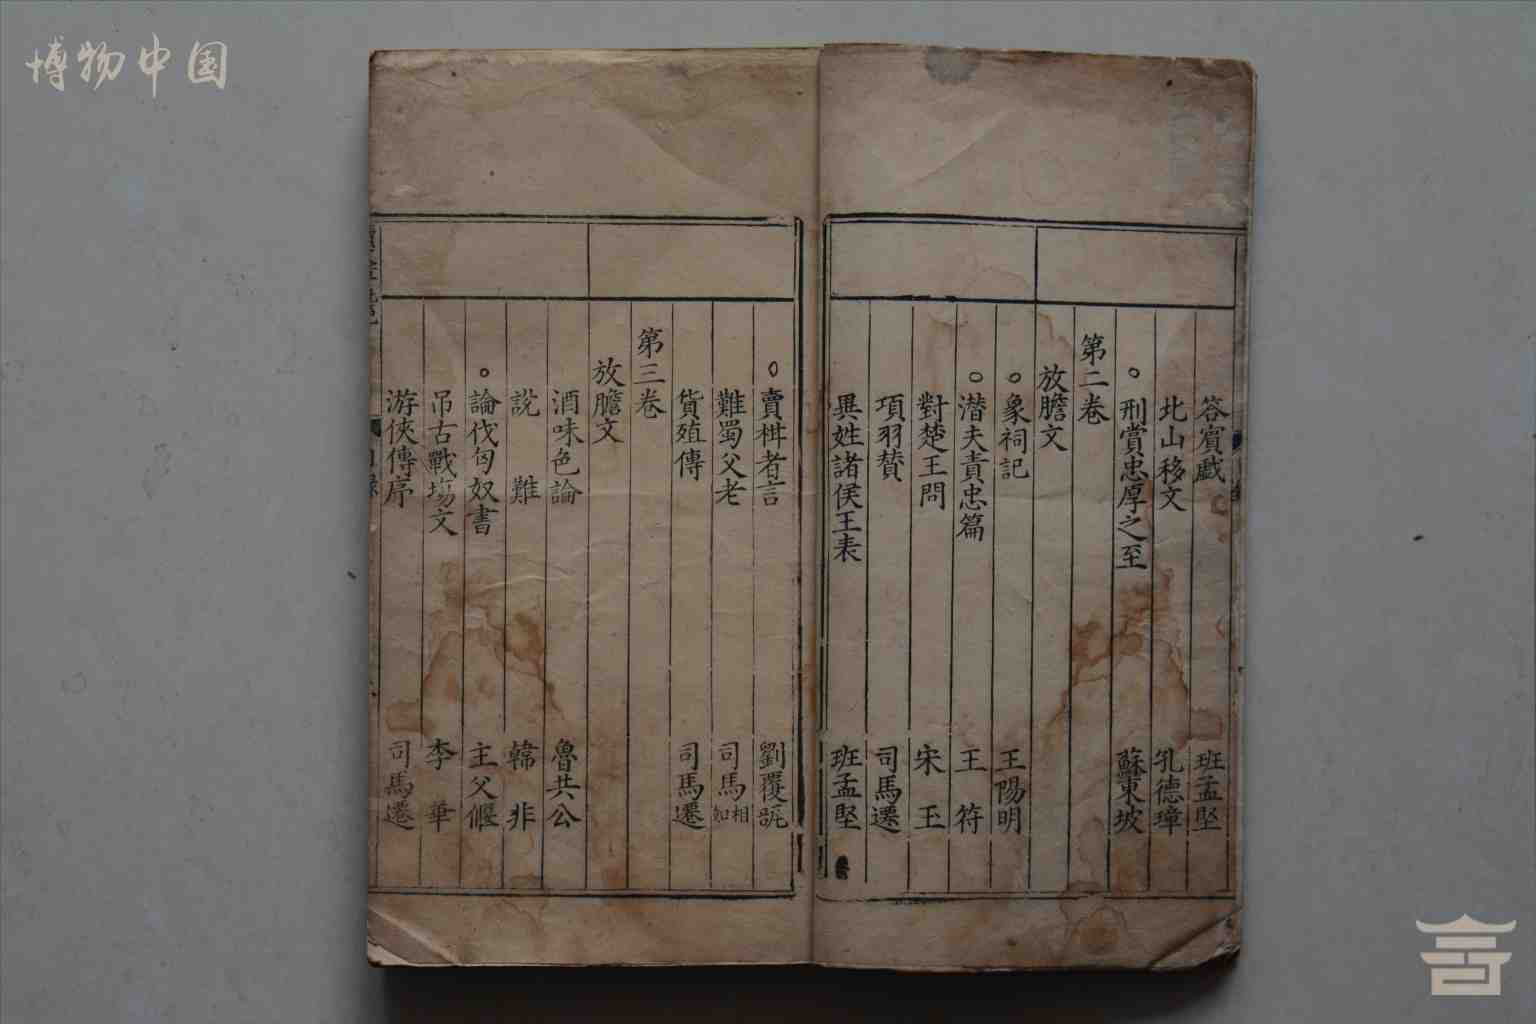 博物中国
答賓戲 班孟堅
北山移文 孔德璋
○刑賞忠厚之至 蘇東坡
第二卷
放膽文
○象祠記 王陽明
○潛夫責忠篇 王符
對楚王問 宋玉
項羽贊 司馬遷
異姓諸侯王表 班孟堅
○賣柑者言 劉覆瓿
難蜀父老 司馬相如
貨殖傳 司馬遷
第三卷
放膽文
酒味色論 魯共公
說難 韓非
○論伐匈奴書 主父偃
吊古戰場文 李華
游俠傳序 司馬遷